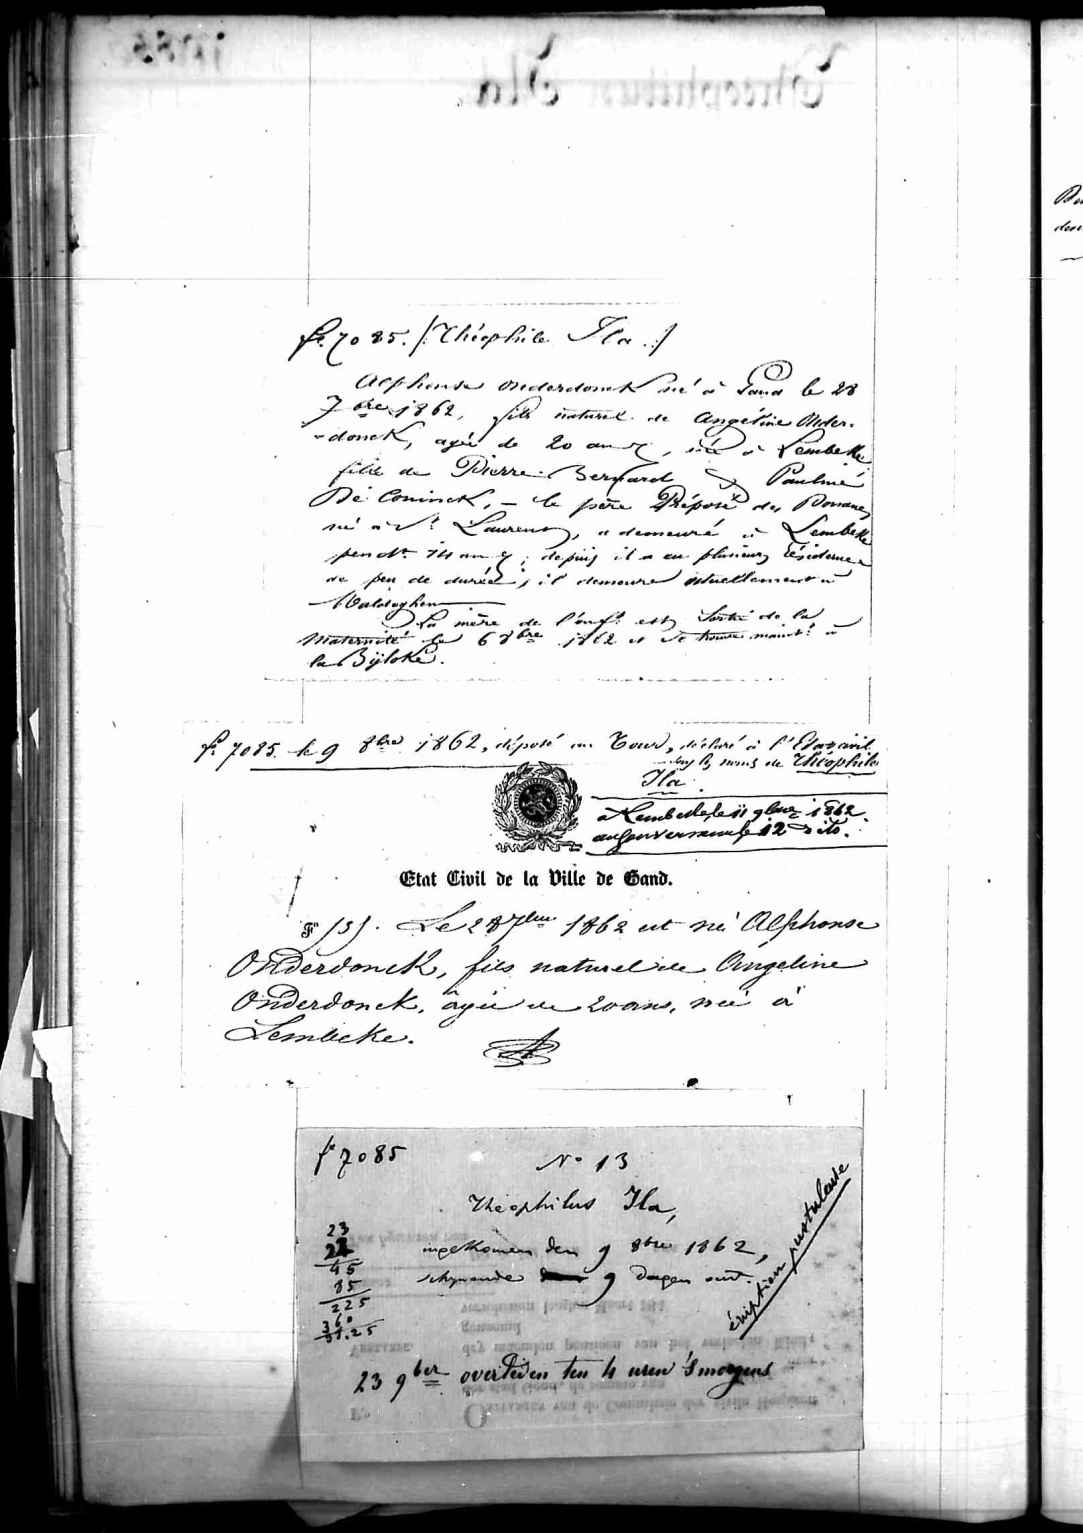 fo 7085. [Théophile Ila.]
Alphonse Onderdonck né à Gand le 28
7bre 1862, fils naturel de Angéline Onder-
-donck, agée de 20 ans, née à Lembeke
fille de Pierre Bernard & Pauline
De Coninck, - le père Préposé des Douanes
né à St Laurent, a demeuré à Lembeke
pendt 14 ans; depuis il a eu plusieurs résidences
de peu de durée, il demeure actuellement à
Maldeghem
La mère de l'enft est sortie de la
Maternité le 6 8bre 1862 et se trouve maintt à
la Byloke.
fo 7085. le 9 8bre 1862, déposé au Tour, déclaré à l'Etat civil
sous les noms de Théophile
Ila.
à Lembeke, le 11 9bre 1862
au gouverneur le 12 dito.
Etat Civil de la Ville de Gand.
Le 28 7bre 1862 est né Alphonse
Onderdonck, fils naturel de Angeline
Onderdonck, âgée de 20 ans, née à
Lembeke.
fo 7085
No 13
Théophilus Ila,
ingekomen den 9 8bre 1862,
schynende 9 dagen oud.
éruption pustuleuse
23
22
45
85
225
360
38.25
23 9ber overleden ten 4 uren 's morgens